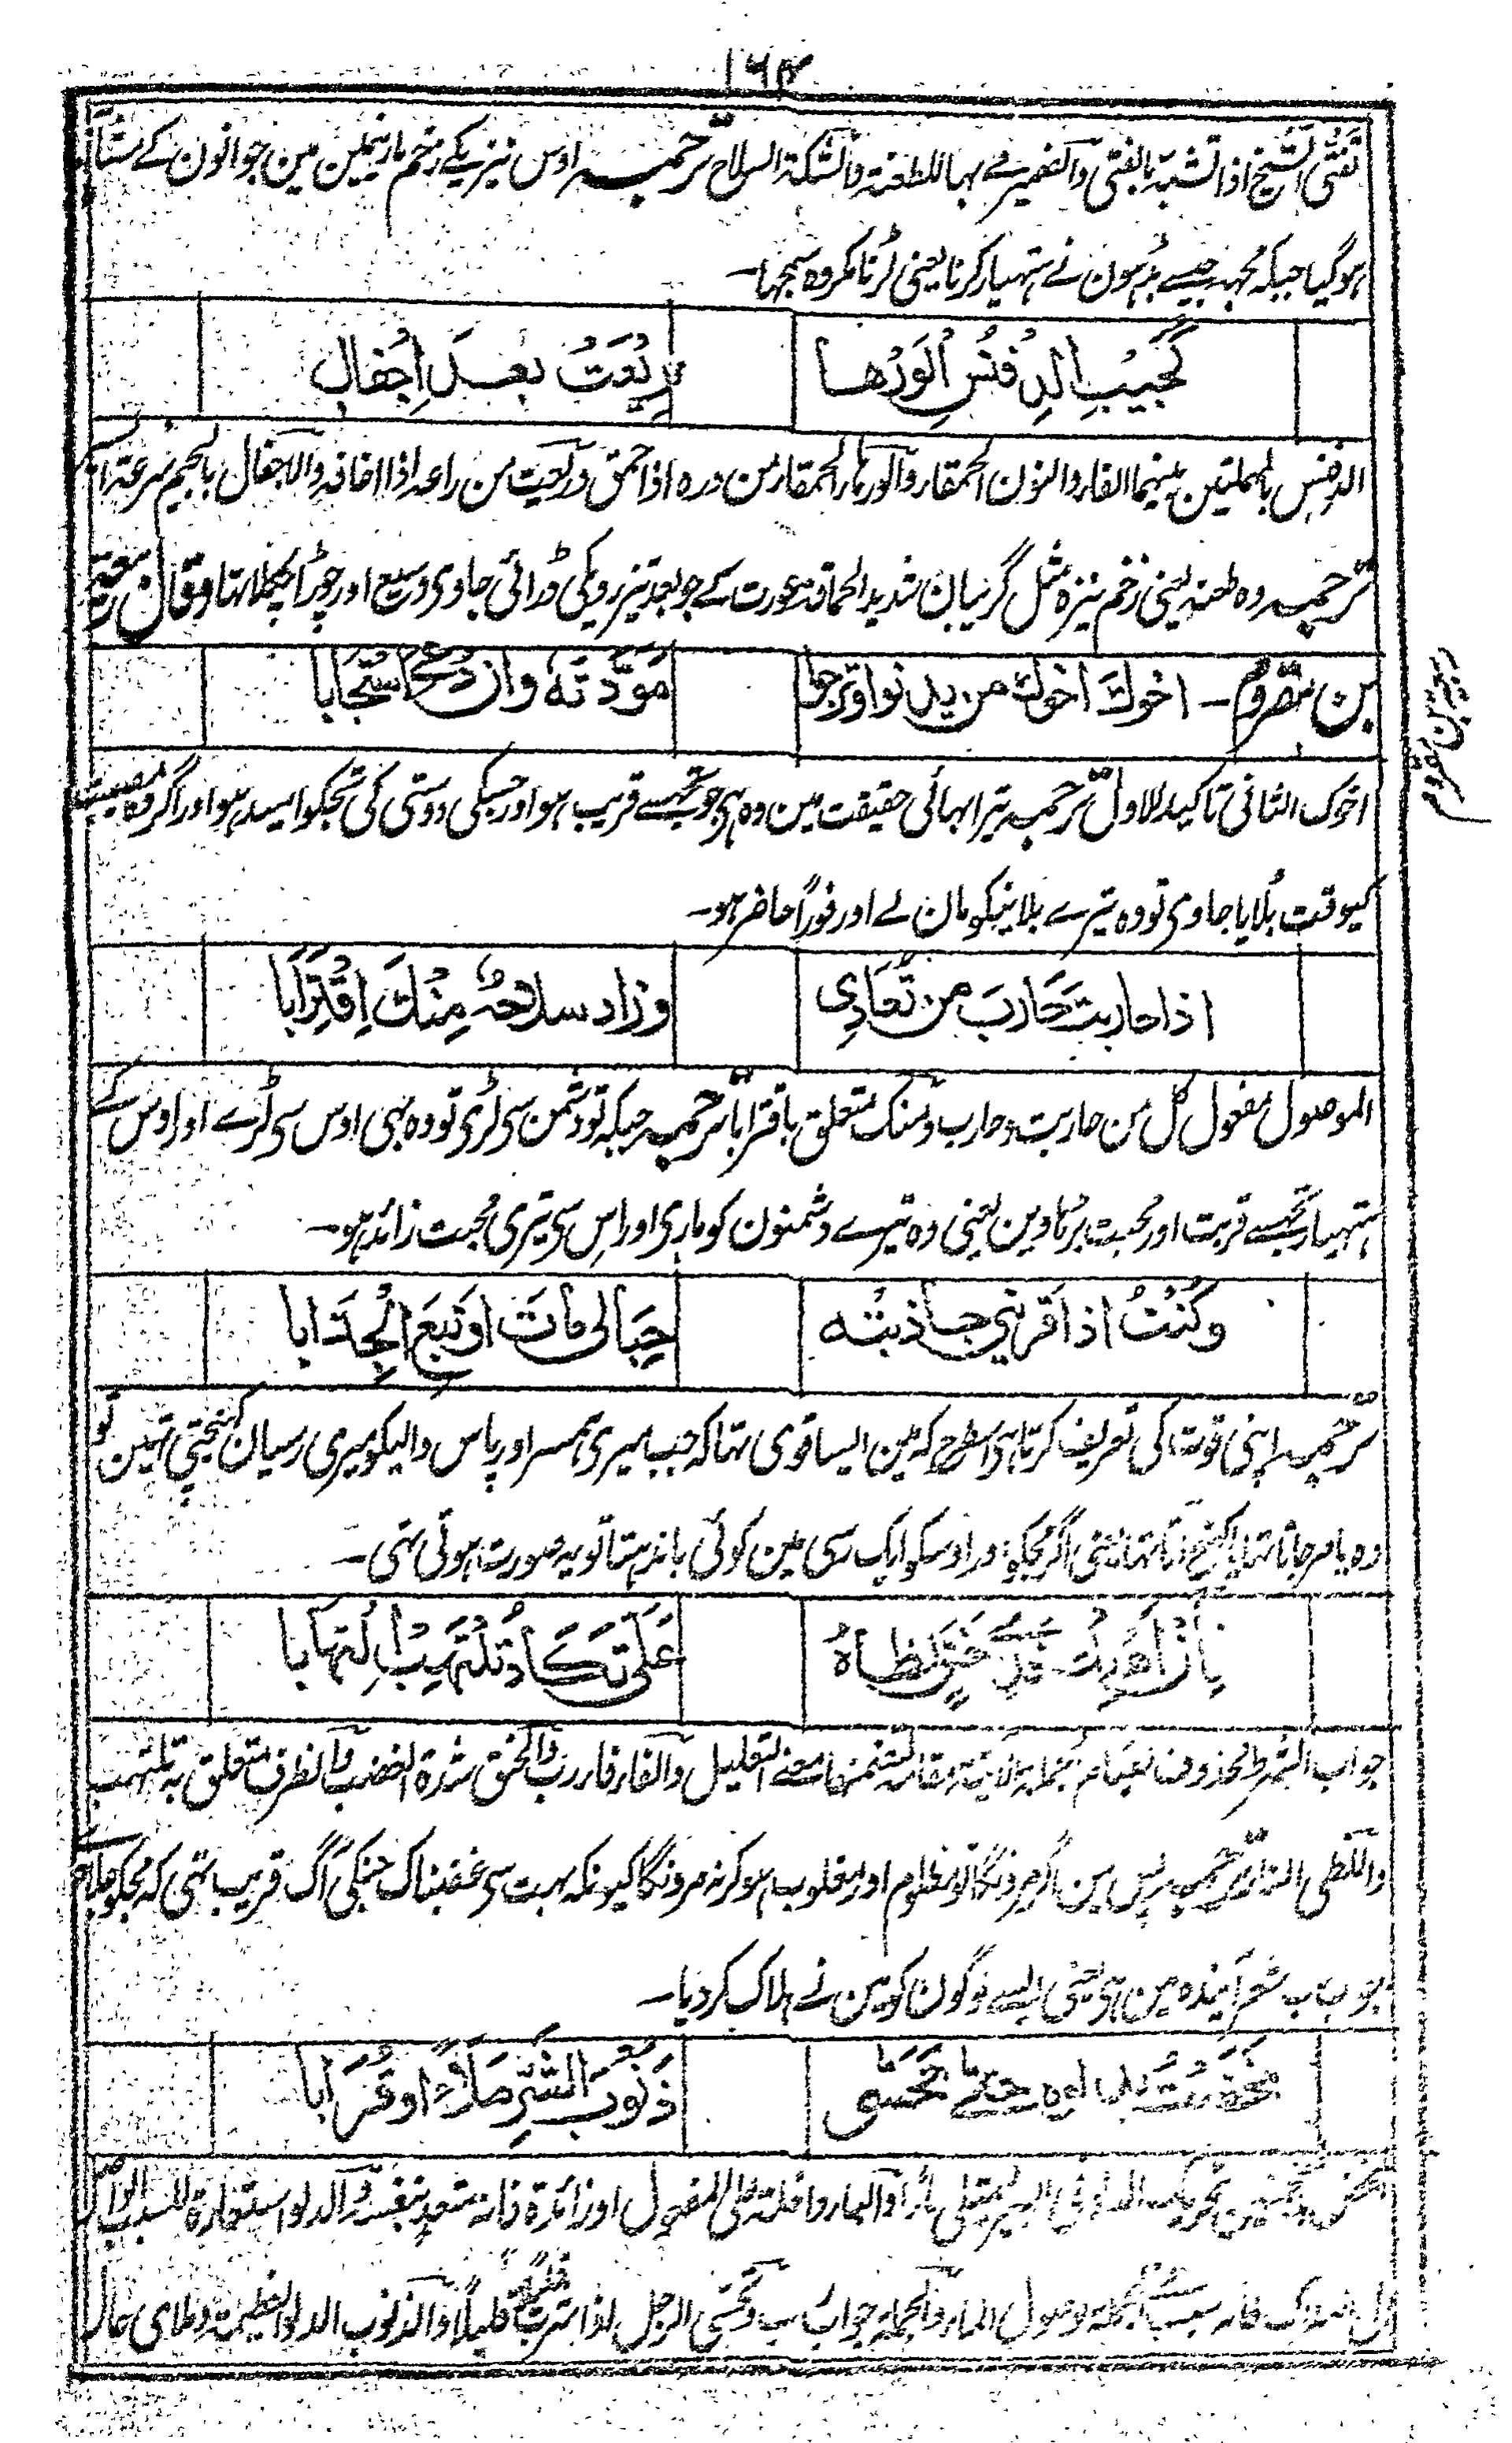 ۱۶۴
تفتّی الشیخ اذا تشبّہ بالفتی والضمیر فی بہا للطعنۃ والشکۃ السلاح ترجمہ اوس نیزیکے زخم مارنیمین مین جوانون کے مشابہ
ہوگیا جبکہ مجھہ جیسے بڈہون نے ہتہیار کرنا یعنی لڑنا مکروہ سمجہا۔
كَجَيْبِ الدِفْنِسِ الْوَرْهَا رِيْعَتْ بعدَ اِجْفالِ
الدفنس بالمہملتین بینہما الفار والنون الحمقار والورہار الحمقار من ورہ اذا حمق وریعت من راعہ اذا اخافہ والاجفال بالجیم سرعۃ
ترجمہ وہ طعنہ یعنی زخم نیزہ مثل گریبان شدید الحماقۃ عورت کے جو بعد تیز رویکی ڈرائی جاوی وسیع اور چوڑا تہا وقال ربیعۃ
بن مقروم ۔ اخوكَ اخوكَ من يدنو اوترجوا مَوَدَّتَهٗ وان دُعِيَ اسْتَجَابا
ربیعہ بن مقروم
اخوک الثانی تاکید للاول ترجمہ تیرا بہائی حقیقت مین وہ ہی جو تجہسے قریب ہو اور جسکی دوستی کی تجکو امید ہو اور اگر وہ مصیبت
کیوقت بُلایا جاوی تو وہ تیرے بلانیکو مان لے اور فوراً حاضر ہو۔
اذا حاربتَ حَارَبَ من تُعَادِي وزاد سلاحُهٗ مِنْكَ اقْتِرَابَا
الموصول مفعول کل من حاربت وحارب ومنک متعلق باقترابا ترجمہ جبکہ تو دشمن سی لڑی تو وہ بہی اوس سی لڑے اور اوس کے
ہتہیار تجہسے قربت اور محبت بڑہاوین یعنی وہ تیرے دشمنون کو ماری اور اس سی تیری محبت زائد ہو۔
وكُنْتُ اذا قَرِيْنِي جاذبتْه حِبَالى مَاتَ او تَبِعَ الْجِذَابا
ترجمہ اپنی قوت کی تعریف کرتا ہی اسطرح کہ مین ایسا قوی تہا کہ جب میری ہمسر اور پاس والیکو میری رسیان کہنچتی تہین تو
وہ یا مرجاتا تہا یا کہنچ آتا تہا یعنی اگر مجکو اور اوسکو ایک رسی مین کوئی باندہتا تو یہ صورت ہوئی تہی۔
فاِن اَهْلِكْ فَذِي حَنَقٍ لَظَاهُ عَلَيَّ تَكَادُ تَلْتَهِبُ الْتِهَابا
جواب الشرط محذوف الجملۃ الآتیۃ مقامہ لتضمنہا معنی التعلیل والفار فار رب والحنق شدۃ الغضب والظرف متعلق بہ تلتہب
واللظی النار ترجمہ پس مین اگر مرونگا تو مظلوم اور مغلوب ہوکر نہ مرونگا کیونکہ بہت سی غضبناک جنکی آگ قریب تہی کہ مجکو جلا
جواب شعر آیندہ مین ہی یعنی ایسے لوگون کو مین نے ہلاک کردیا۔
مَخَضْتُ بدلوه حتى تَحَسَّى ذَنُوبَ الشَّرِ مَلْأىٰ او قُرَابا
تحریک الدلو فی البیر والبار داخلۃ علی المفعول او زائدۃ فانہ متعد بنفسہ والدلو استعارۃ للسبب
فانہ سبب لوصول المار والجملۃ جواب رب وتحسّی الرجل اذا شرب قلیلاً قلیلاً والذنوب الدلو العظیمۃ وملای حال